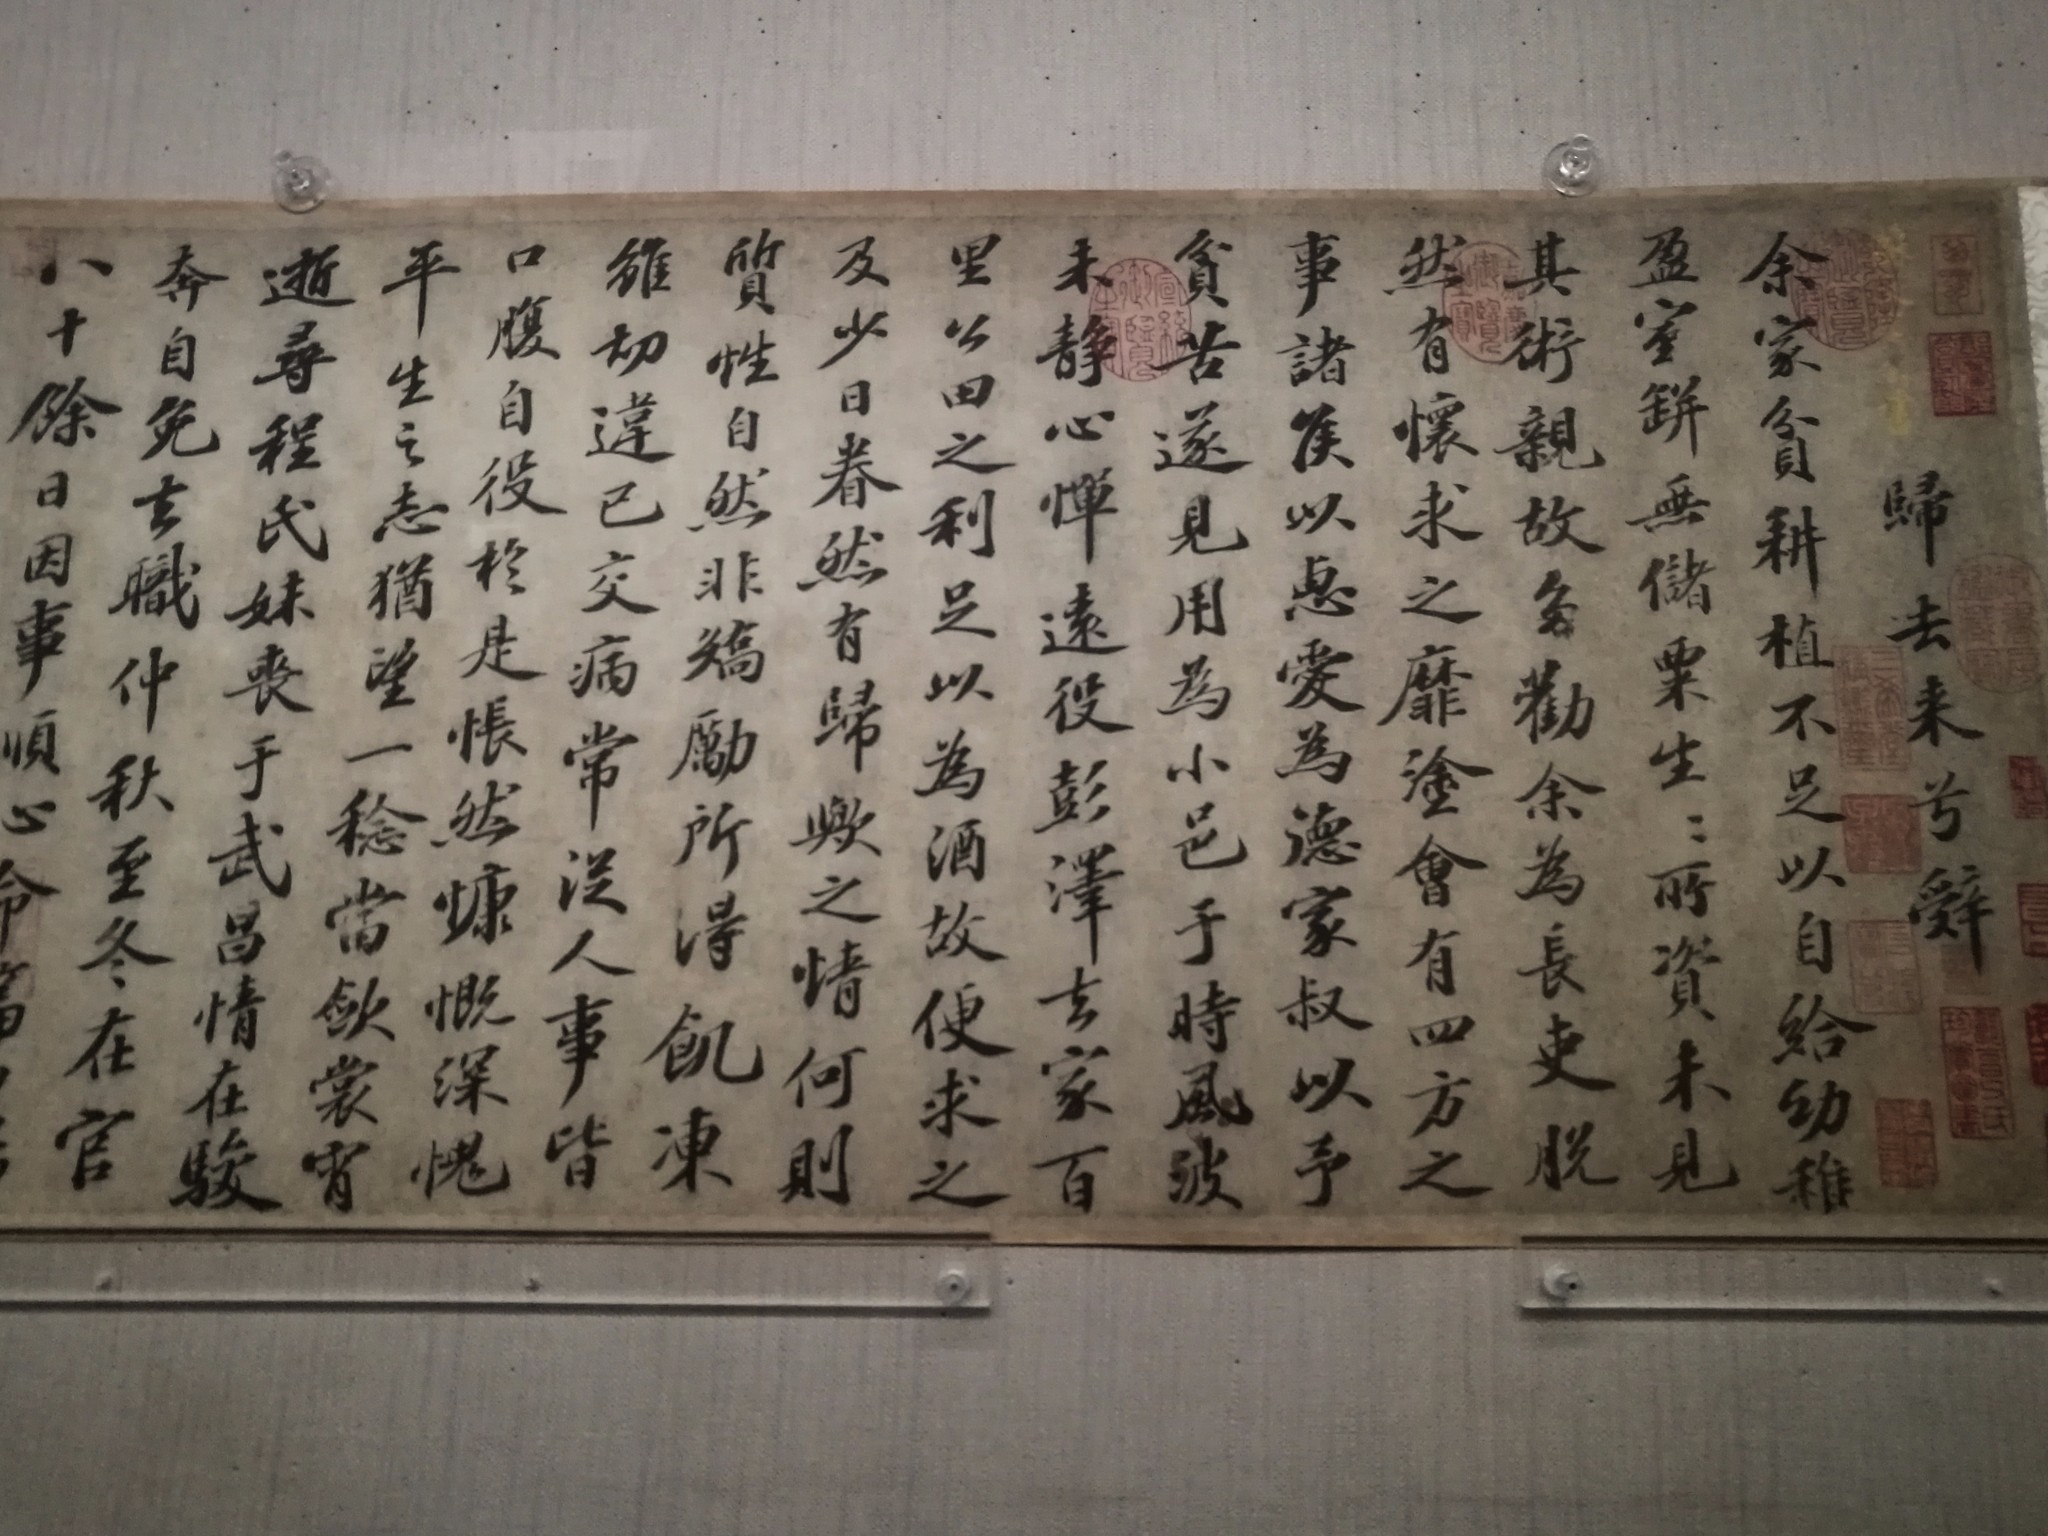 歸去来兮辤
余家貧耕植不足以自給幼稚
盈室缾無儲粟生〻所資未見
其術親故多勸余為長吏脱
然有懷求之靡塗會有四方之
事諸侯以惠愛為德家叔以予
貧苦遂見用為小邑于時風波
未静心憚遠役彭澤去家百
里公田之利足以為酒故便求之
及少日眷然有歸歟之情何則
質性自然非矯勵所得飢凍
雖切違己交病常従人事皆
口腹自役於是悵然慷慨深愧
平生之志猶望一稔當歛裳宵
逝尋程氏妹喪于武昌情在駿
奔自免去職仲秋至冬在官
八十餘日因事順心命篇